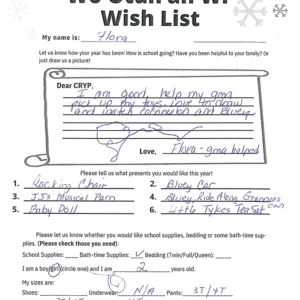 Wish List
My name is: Flora
Let us know how your year has been! How is school going? Have you been helpful to your family? Or
just draw us a picture!
Dear CRYP,
I am good, help my gma
pick up my toys. love to draw
and watch cocomelon and Bluey
Love, Flora - gma helped
Please tell us what presents you would like this year!
1. Rocking Chair
2. Bluey Car
3. JJ's Musical Barn
4. Bluey Ride Along Grannies car
5. Baby Doll
6. Little Tykes Tea Set
Please let us know whether you would like school supplies, bedding or some bath-time sup-
plies. (Please check those you need):
School Supplies: Bath-time Supplies: Bedding (Twin/Full/Queen):
I am a boy/girl (circle one) and I am 2 years old.
My sizes are:
Shoes: Underwear: N/A Pants: 3T/4T